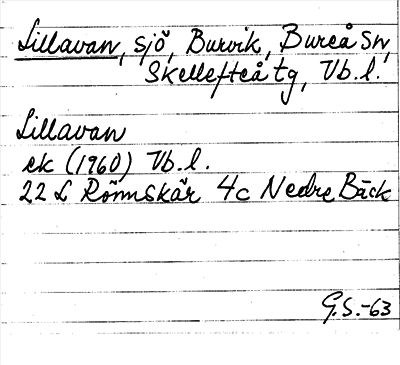 Lillavan, sjö, Burvik, Bureå sn,
Skellefteå tg, Vb. l.
Lillavan
ek (1960) Vb. l.
22 L Rönnskär 4c Nedre Bäck
G.S.-63